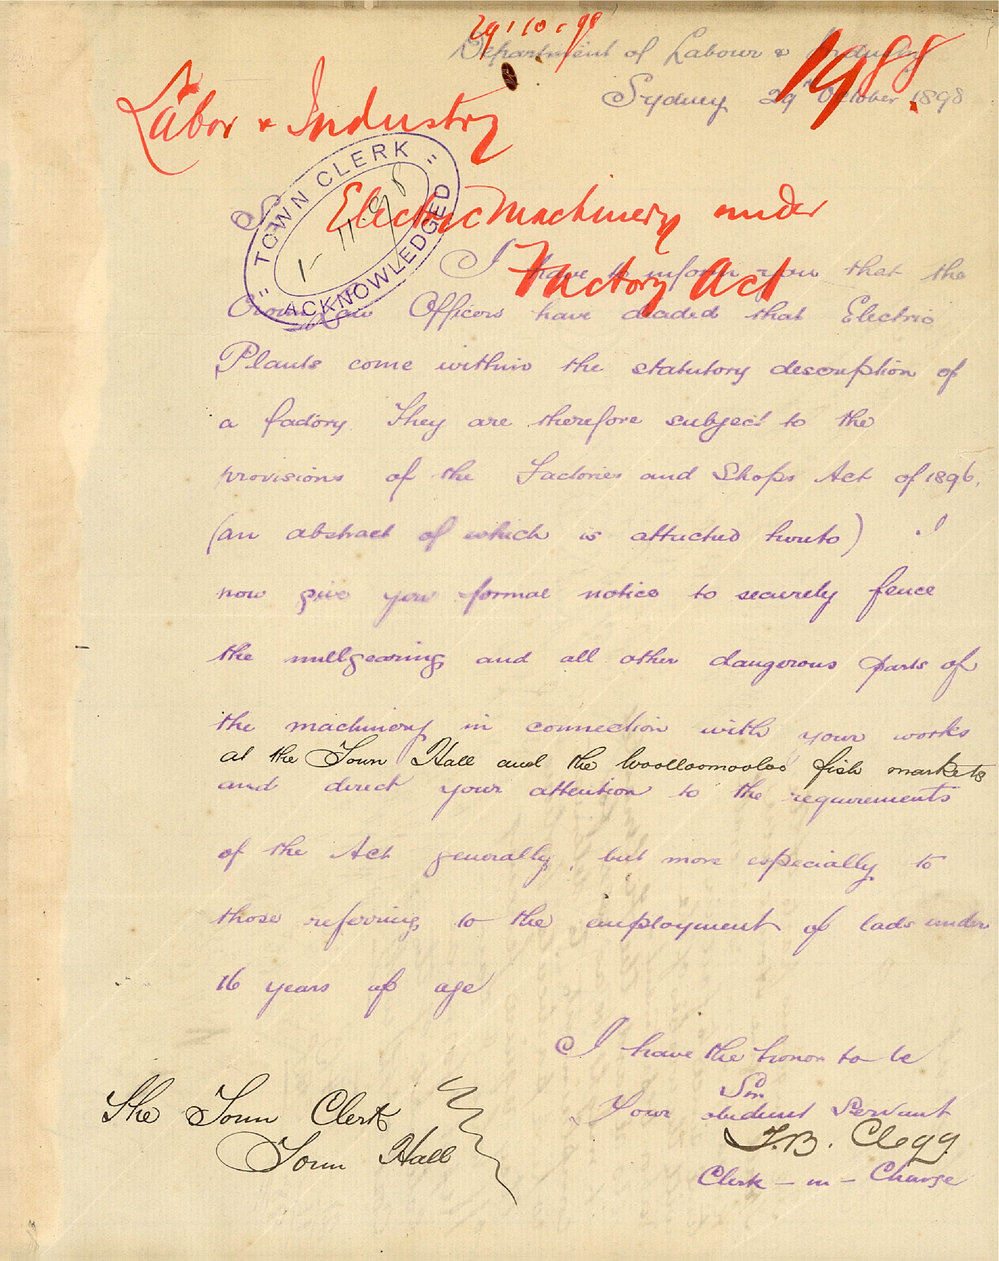 29.10.98
Department of Labour & Industry
1988
Sydney 29th October 1898
Labor & Industry
TOWN CLERK
1-11.98
ACKNOWLEDGED
Electric Machinery under
Factory Act
Sir
I have to inform you that the
Crown Law Officers have decided that Electric
Plants come within the statutory description of
a factory. They are therefore subject to the
provisions of the Factories and Shops Act of 1896,
(an abstract of which is attached hereto). I
now give you formal notice to securely fence
the millgearing and all other dangerous parts of
the machinery in connection with your works
at the Town Hall and the Woolloomooloo fish markets
and direct your attention to the requirements
of the Act generally, but more especially to
those referring to the employment of lads under
16 years of age
I have the honor to be
Sir
Your obedient Servant
J.B. Clegg.
Clerk-in-Charge
The Town Clerk
Town Hall